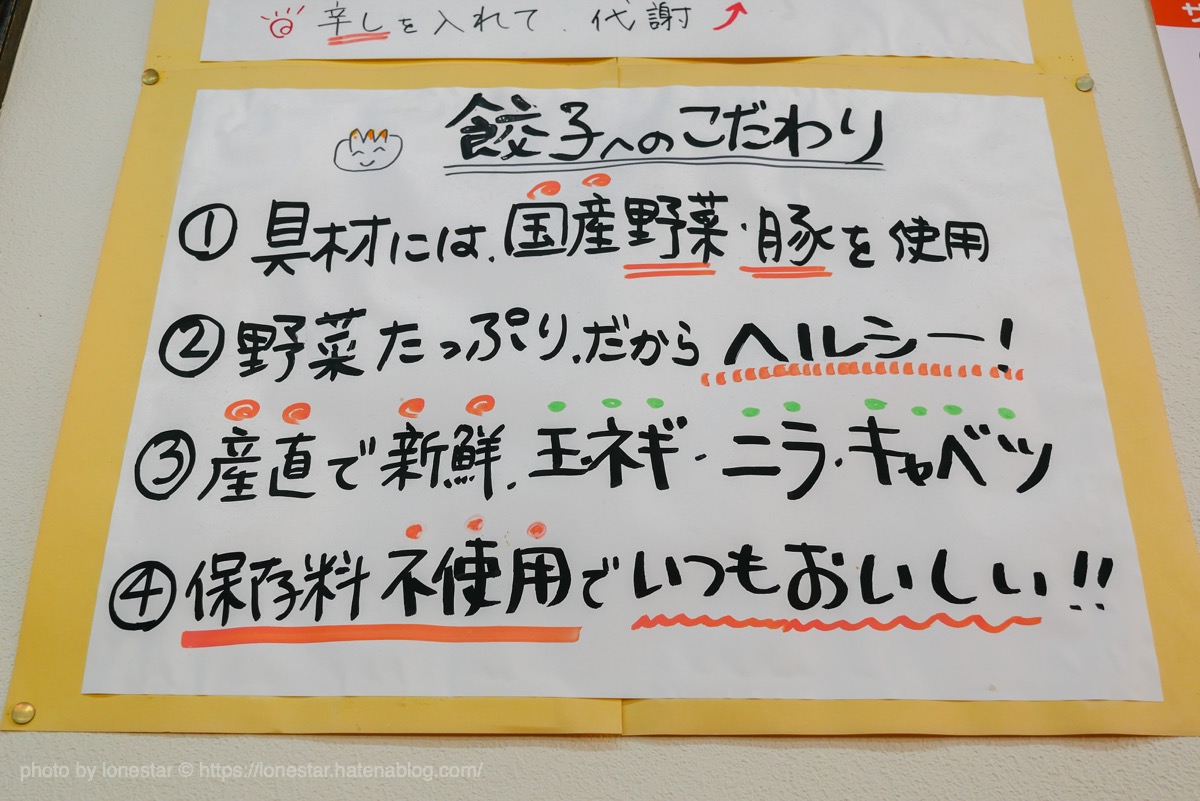 辛しを入れて、代謝
サ
餃子へのこだわり
① 具材には、国産野菜・豚を使用
② 野菜たっぷり、だからヘルシー!
③ 産直で新鮮、玉ネギ・ニラ・キャベツ
④ 保存料不使用でいつもおいしい!!
photo by lonestar © https://lonestar.hatenablog.com/